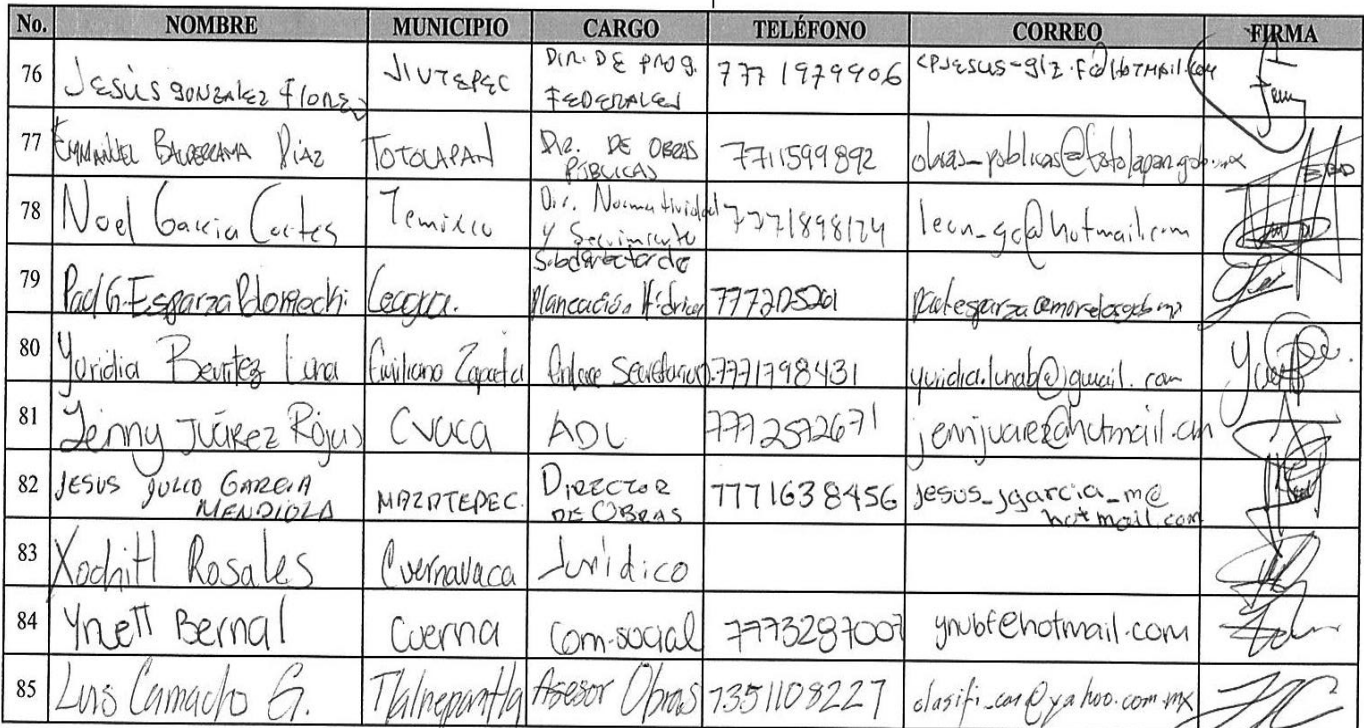 No. NOMBRE MUNICIPIO CARGO TELÉFONO CORREO FIRMA
76 Jesús Gonzalez Flores JIUTEPEC Dir. DE prog. FEDERALES 7771979906 CPJESUS-glz.F@HOTMAIL.com
77 EMMANUEL BALDERRAMA DIAZ TOTOLAPAN DIR. DE OBRAS PÚBLICAS 7711599892 obras_publicas@totolapan.gob.mx
78 Noel Garcia Cortes Temixco Dir. Normatividad y Seguimiento 7771898124 leon_gc@hotmail.com
79 Esparza Ceagua. Subdirector de Planeación Hídrica
80 Yuridia Benitez Luna Emiliano Zapata Enlace 7771798431 yuridia.lunab@gmail.com
81 Jenny Juárez Rojas Cvaca 7772572671 jennjuarez@hotmail.com
82 JESUS JULIO GARCIA MENDIOLA MAZATEPEC. DIRECTOR DE OBRAS 7771638456 jesus_jgarcia_m@hotmail.com
83 Xochitl Rosales Cuernavaca Jurídico
84 Ynett Bernal Cuerna Com-social 7773287007 ynubf@hotmail.com
85 Luis Camacho G. Tlalnepantla Asesor Obras 7351108227